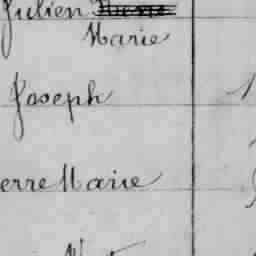 Julien
Marie
Joseph
erre Marie